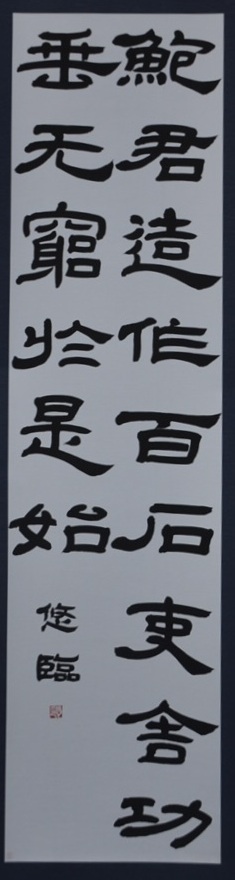 鮑君造作百石吏舍功
垂无窮於是始
悠臨